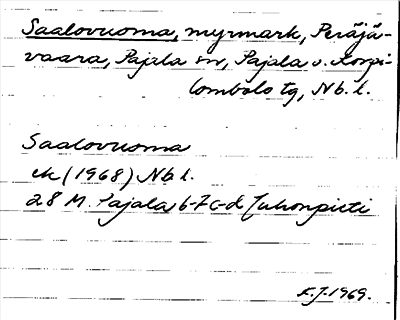 Saalovuoma, myrmark, Peräjä-
vaara, Pajala sn, Pajala o. Korpi-
lombolo tg, Nb. l.
Saalovuoma
ek (1968) Nb l.
28 M. Pajala 6-7 c-d Juhonpieti
K.J. 1969.